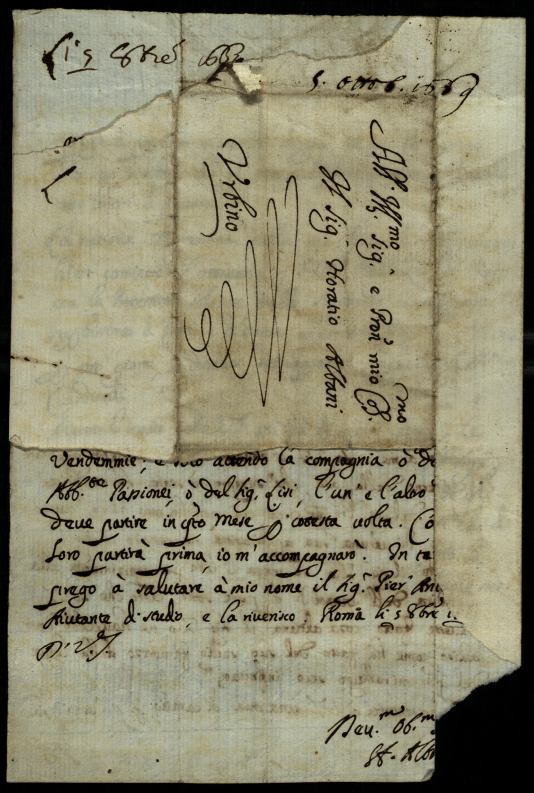 li 5 8bre 1669
5. Ottob. 1669
All' Ill.mo Sig.r e Pron' mio Col.mo
Il Sig.r Horatio Albani
Urbino
Vendemmie; e solo attendo la compagnia ò de
Abb.te Passionei, ò del Sig.r Lisi, l'un' e l'altro
deve partire in q̃sto Mese p̱ cotesta volta. Co
loro partirà prima, io m'accompagnarò. In ta
prego à salutare à mio nome il Sig.r Pier' Ant
Aiutante di studio, e la riverisco. Roma li 5 8bre
Di V.S.
Dev.mo Ob.mo
Alb